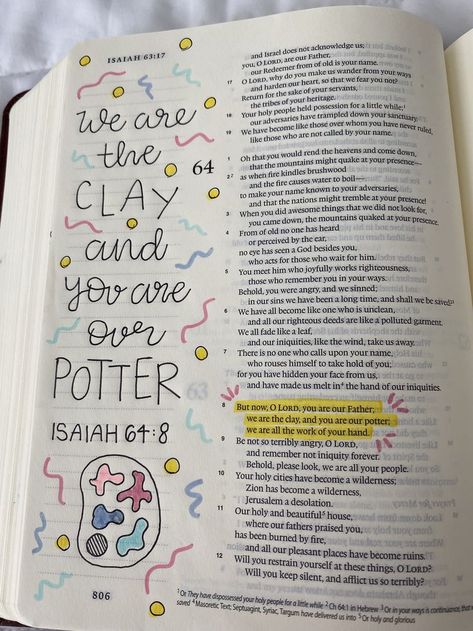 ISAIAH 63:17
we are
the
CLAY
and
you are
over
POTTER
ISAIAH 64:8
806
and Israel does not acknowledge us;
you, O LORD, are our Father,
our Redeemer from of old is your name.
17 O LORD, why do you make us wander from your ways
and harden our heart, so that we fear you not?
Return for the sake of your servants,
the tribes of your heritage.
18 Your holy people held possession for a little while;1
our adversaries have trampled down your sanctuary.
19 We have become like those over whom you have never ruled,
like those who are not called by your name.
64
1 Oh that you would rend the heavens and come down,
that the mountains might quake at your presence—
2 2 as when fire kindles brushwood
and the fire causes water to boil—
to make your name known to your adversaries,
and that the nations might tremble at your presence!
3 When you did awesome things that we did not look for,
you came down, the mountains quaked at your presence.
4 From of old no one has heard
or perceived by the ear,
no eye has seen a God besides you,
who acts for those who wait for him.
5 You meet him who joyfully works righteousness,
those who remember you in your ways.
Behold, you were angry, and we sinned;
in our sins we have been a long time, and shall we be saved?3
6 We have all become like one who is unclean,
and all our righteous deeds are like a polluted garment.
We all fade like a leaf,
and our iniquities, like the wind, take us away.
7 There is no one who calls upon your name,
who rouses himself to take hold of you;
for you have hidden your face from us,
and have made us melt in4 the hand of our iniquities.
8 But now, O LORD, you are our Father;
we are the clay, and you are our potter;
we are all the work of your hand.
9 Be not so terribly angry, O LORD,
and remember not iniquity forever.
Behold, please look, we are all your people.
10 Your holy cities have become a wilderness;
Zion has become a wilderness,
Jerusalem a desolation.
11 Our holy and beautiful5 house,
where our fathers praised you,
has been burned by fire,
and all our pleasant places have become ruins.
12 Will you restrain yourself at these things, O LORD?
Will you keep silent, and afflict us so terribly?
1 Or They have dispossessed your holy people for a little while 2 Ch 64:1 in Hebrew 3 Or in your ways is continuance, that
saved 4 Masoretic Text; Septuagint, Syriac, Targum have delivered us into 5 Or holy and glorious